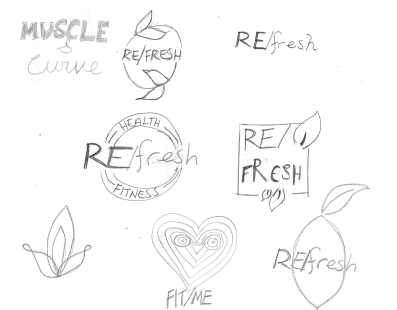 MUSCLE
&
Curve
RE/FRESH
RE/fresh
HEALTH
RE/fresh
FITNESS
RE/
FRESH
FIT/ME
RE/fresh